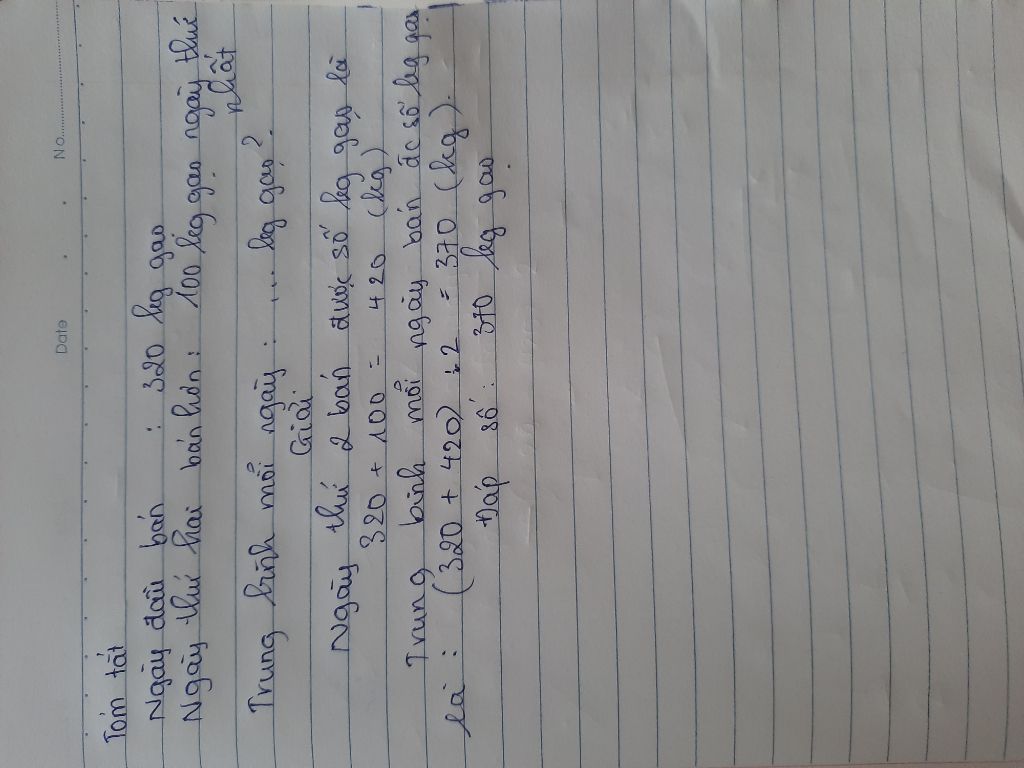 No.
Date
Tóm tắt
Ngày đầu bán : 320 kg gạo
Ngày thứ hai bán hơn : 100 kg gạo ngày thứ
nhất
Trung bình mỗi ngày : ... kg gạo?
Giải
Ngày thứ 2 bán được số kg gạo là
320 + 100 = 420 (kg)
Trung bình mỗi ngày bán đc số kg gạo
là : (320 + 420) : 2 = 370 (kg).
Đáp số : 370 kg gạo